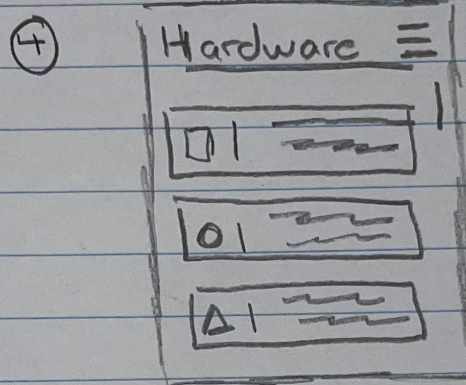 4
Hardware